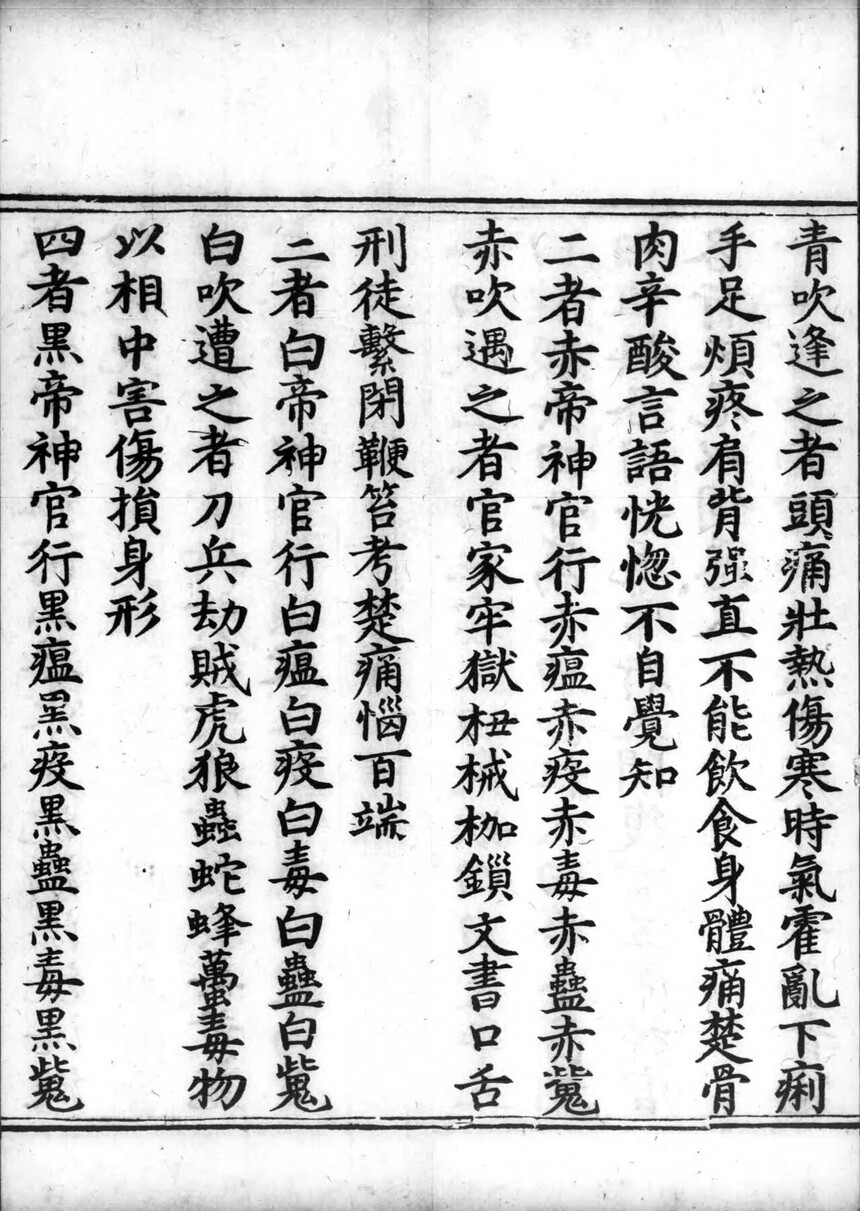 青吹逢之者頭痛壯熱傷寒時氣霍亂下痢
手足煩疼肩背強直不能飲食身體痛楚骨
肉辛酸言語恍惚不自覺知
二者赤帝神官行赤瘟赤疫赤毒赤蠱赤䰡
赤吹遇之者官家牢獄杻械枷鎖文書口舌
刑徒繫閉鞭笞考楚痛惱百端
三者白帝神官行白瘟白疫白毒白蠱白䰡
白吹遭之者刀兵劫賊虎狼蟲蛇蜂蠆毒物
以相中害傷損身形
四者黑帝神官行黑瘟黑疫黑蠱黑毒黑䰡